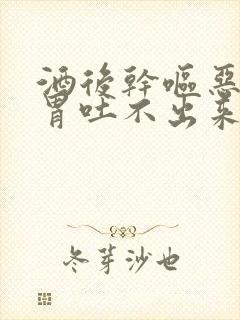 酒後幹嘔惡
胃吐不出來
冬芽沙也